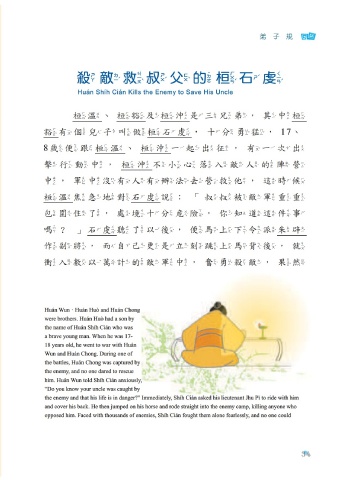 弟子規
殺敵救叔父的桓石虔
Huán Shíh Cián Kills the Enemy to Save His Uncle
桓溫、桓豁及桓沖是三兄弟，其中桓
豁有個兒子叫做桓石虔，十分勇猛，17、
8歲便跟桓溫、桓沖一起出征，有一次出
擊行動中，桓沖不小心落入敵人的陣營
中，軍中沒有人有辦法去營救他，這時候
桓溫焦急地對石虔說：「叔叔被敵軍重重
包圍住了，處境十分危險，你知道這件事
嗎？」石虔聽了以後，便馬上下令派朱辟
作副將，而自己更是立刻跳上馬背後，就
衝入數以萬計的敵軍中，奮勇殺敵，果然
Huán Wun、Huán Huò and Huán Chong
were brothers. Huán Huò had a son by
the name of Huán Shíh Cián who was
a brave young man. When he was 17-
18 years old, he went to war with Huán
Wun and Huán Chong. During one of
the battles, Huán Chong was captured by
the enemy, and no one dared to rescue
him. Huán Wun told Shíh Cián anxiously,
"Do you know your uncle was caught by
the enemy and that his life is in danger?" Immediately, Shíh Cián asked his lieutenant Jhu Pì to ride with him
and cover his back. He then jumped on his horse and rode straight into the enemy camp, killing anyone who
opposed him. Faced with thousands of enemies, Shíh Cián fought them alone fearlessly, and no one could